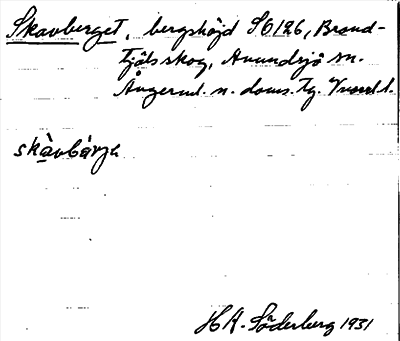 Skavberget, bergshöjd SO 126, Brand-
tjäls skog, Anundsjö sn.
Ångerml. n. doms. tg. Vnorrl l.
skàvbárjə
HA. Söderberg 1931